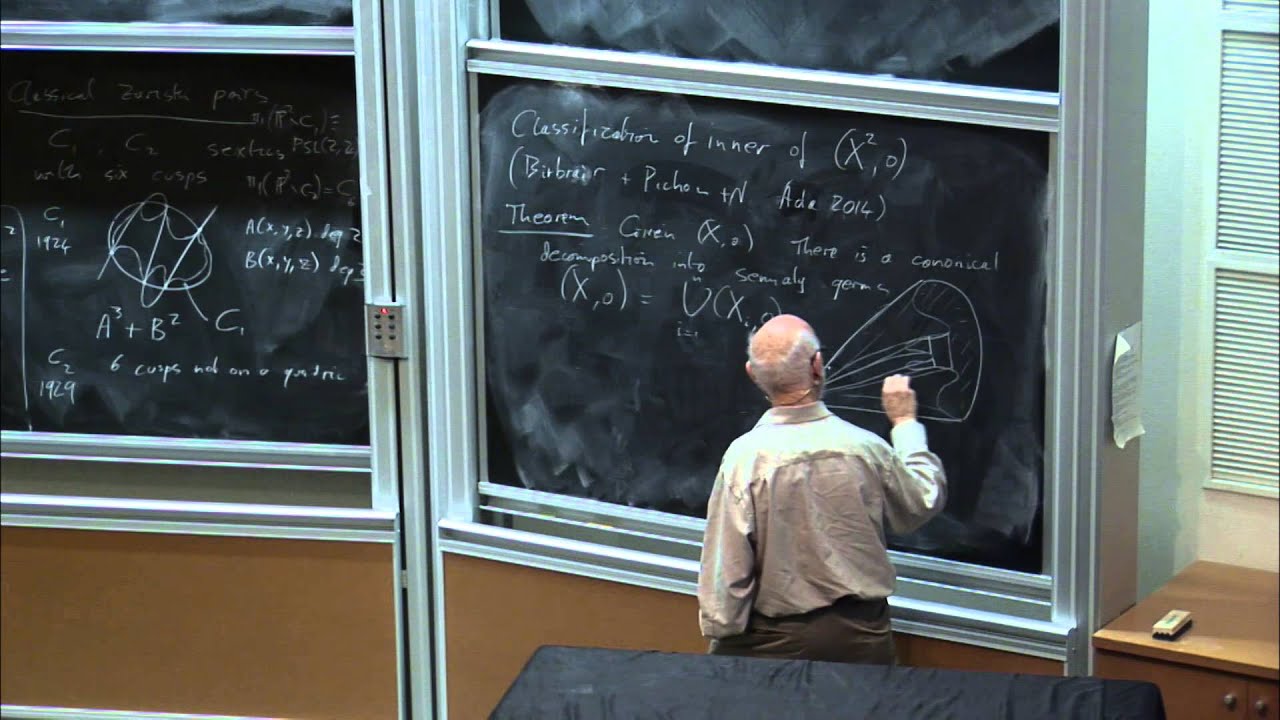 Classical Zariski pairs
π₁(P²∖C₁) ≅
C₁, C₂ sextics PSL(2,Z)
with six cusps
π₁(P²∖C₂) = C₆
C₁
1924
A(x,y,z) deg 2
B(x,y,z) deg 3
A³ + B² C₁
C₂
1929
6 cusps not on a quadric
Classification of inner of (X²,0)
(Birbrair + Pichon + N Acta 2014)
Theorem Given (X,0) There is a canonical
decomposition into semialg germs
(X,0) = ⋃ⁿᵢ₌₁ (Xᵢ,0)